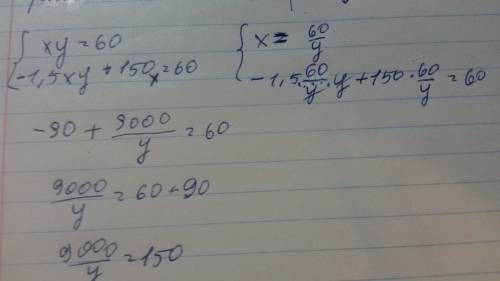 { xy = 60    { x = 60/y
{ -1,5xy + 150x = 60    { -1,5 · 60/y · y + 150 · 60/y = 60
-90 + 9000/y = 60
9000/y = 60 + 90
9000/y = 150